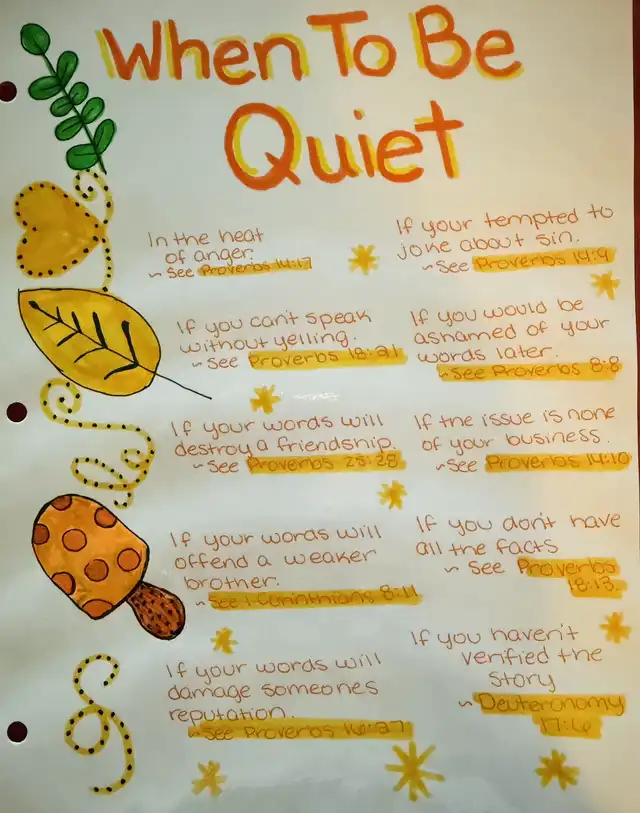 When To Be
Quiet
In the heat
of anger.
~ See Proverbs 14:17
If your tempted to
joke about sin.
~See Proverbs 14:9
If you can't speak
without yelling.
~see Proverbs 18:21
If you would be
ashamed of your
words later.
~See Proverbs 8:8
If your words will
destroy a friendship.
~See Proverbs 25:28
If the issue is none
of your business.
~See Proverbs 14:10
If your words will
offend a weaker
brother.
~See 1 Corinthians 8:11
If you don't have
all the facts
~ See Proverbs
18:13
If your words will
damage someones
reputation.
~See Proverbs 16:27
If you haven't
verified the
story
~ Deuteronomy
17:6